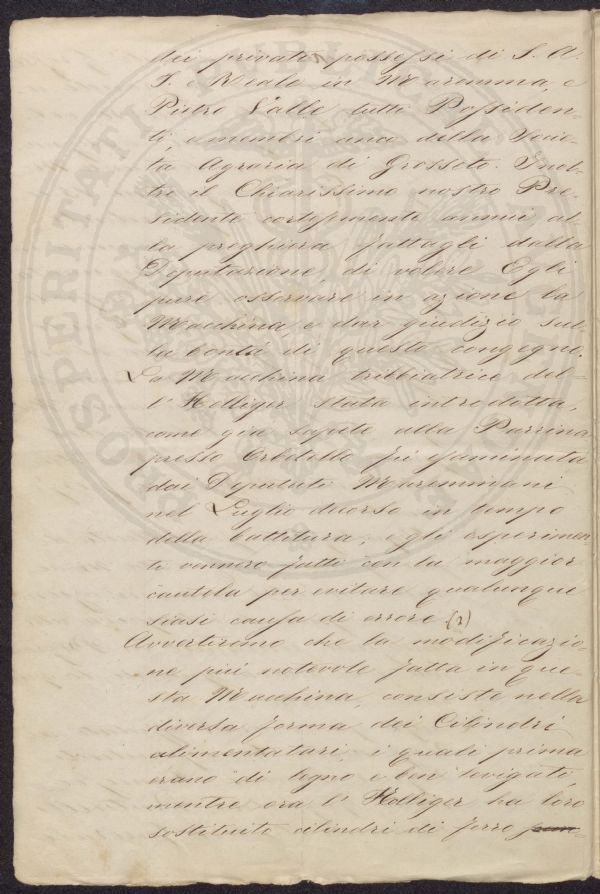 dei privati possessi di S. A.
I. e Reale in Maremma, e
Pietro Valle tutti Possiden-
ti, e membri anco della Socie-
tà Agraria di Grosseto. Inol-
tre il Chiarissimo nostro Pre-
sidente cortesemente annuì al-
la preghiera fattagli dalla
Deputazione, di volere Egli
pure osservare in azione la
Macchina e dar giudizio sul-
la bontà di questo congegno.
La Macchina tribbiatrice del-
l' Holliger stata introdotta,
come già sapete alla Parrina
presso Orbetello fù esaminata
dai Deputati Maremmani
nel Luglio decorso in tempo
della battitura, e gli esperimen-
ti vennero fatti con la maggior
cautela per evitare qualunque
siasi causa di errore (2)
Avvertiremo che la modificazio-
ne più notevole fatta in que-
sta Macchina, consiste nella
diversa forma dei Cilindri
alimentatari, i quali prima
erano di legno e ben levigato,
mentre ora l' Holliger ha loro
sostituito cilindri di ferro
PROSPERITATI PUBLICAE AUGENDAE